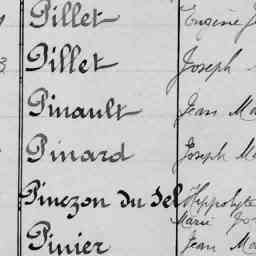 Pillet Eugène
Pillet Joseph
Pinault Jean Ma
Pinard Joseph Ma
Pinczon du Sel Hippolyte
Marie Jos
Pinier Jean Ma